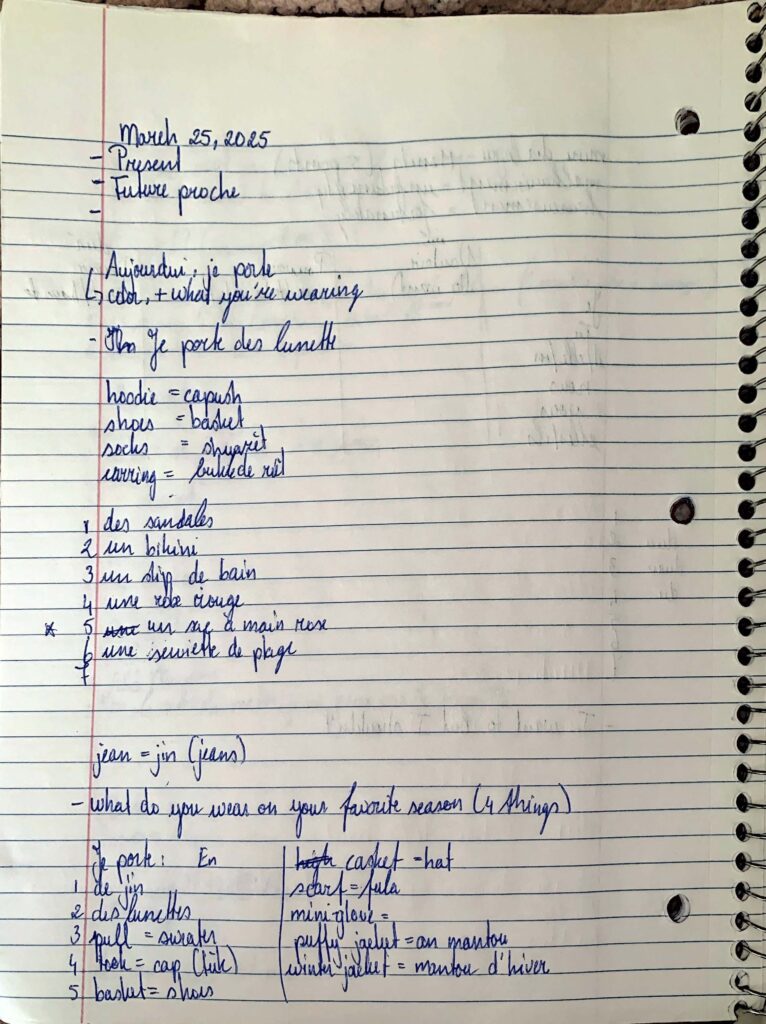 March 25, 2025
- Present
- Future proche
-
Aujourdui, je porte
↳ color, + what you're wearing
- Je porte des lunette
hoodie = capush
shoes = basket
socks = shuarêt
earring =
1 des sandales
2 un bikini
3 un slip de bain
4 une robe rouge
* 5 un sac à main rose
6 une serviette de plage
7
jean = jin (jeans)
- what do you wear on your favorite season (4 things)
Je porte: En
1 de jin
2 des lunettes
3 pull = sweater
4 took = cap (tük)
5 basket = shoes
casket = hat
scarf = fula
mini-glove =
puffy jacket = an mantou
winter jacket = mantou d'hiver